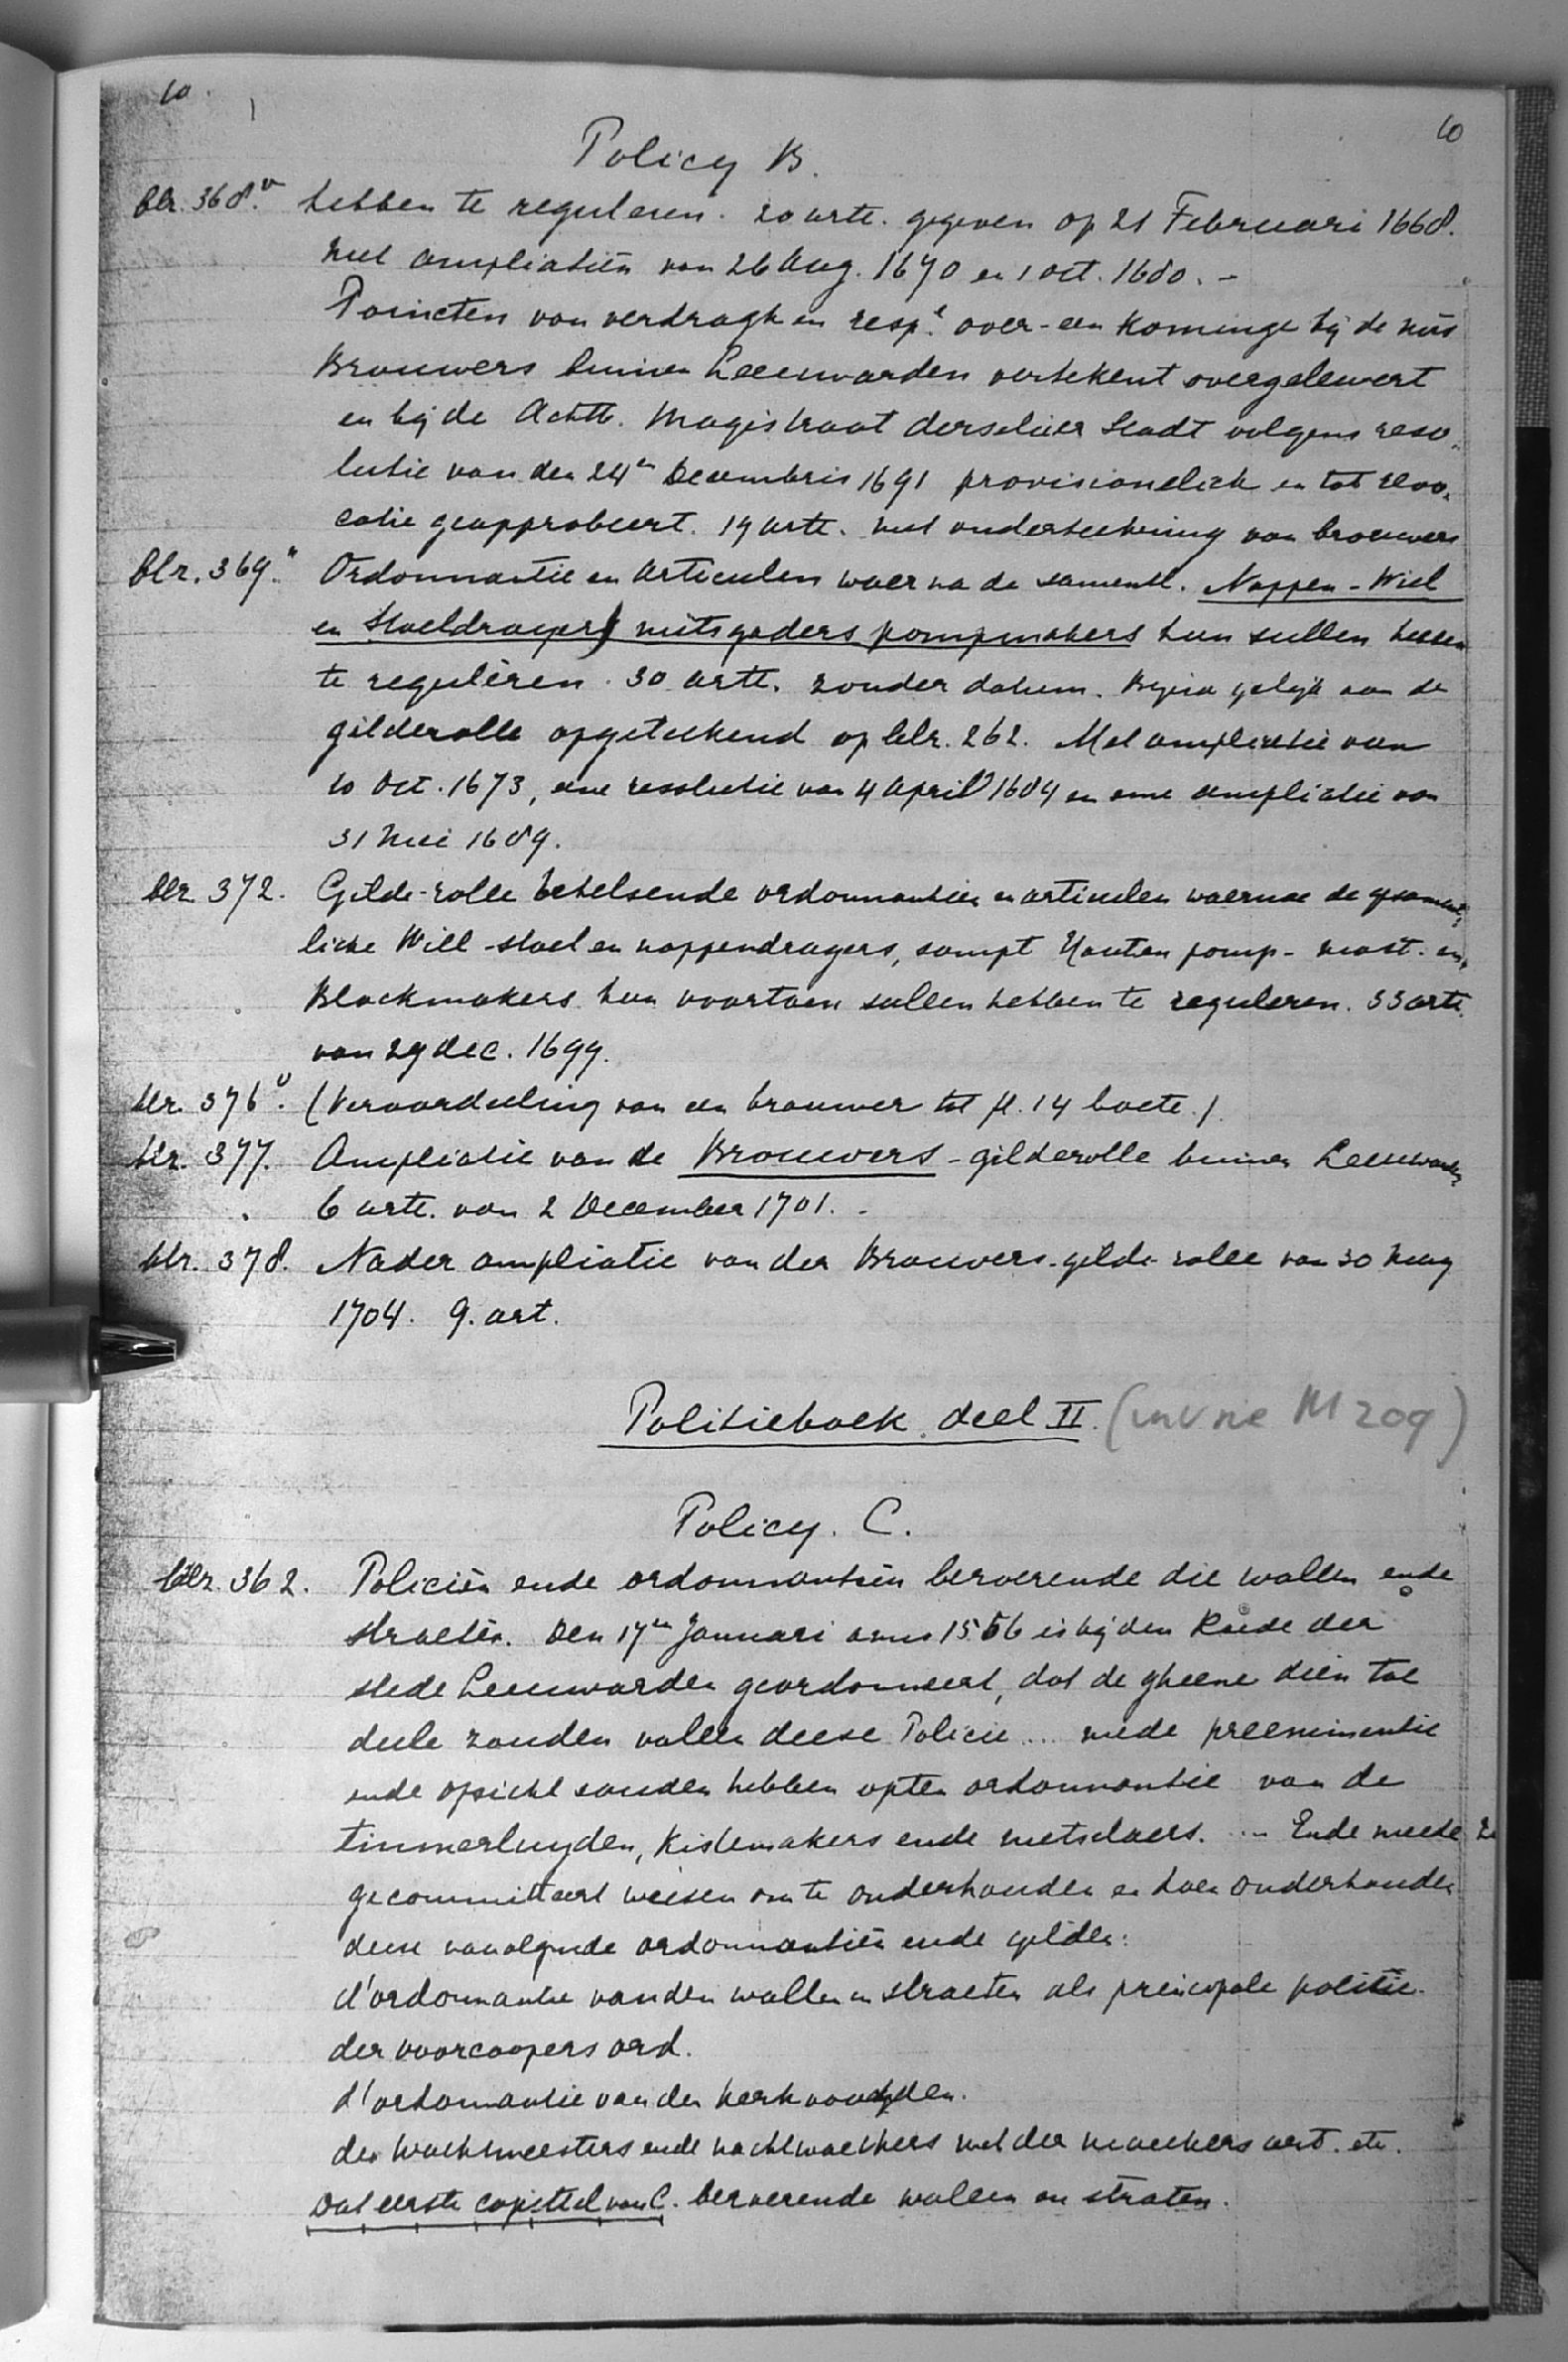 10.
10
Policy B.
blz. 368.v hebben te reguleren. 20 artt. gegeven op 21 Februari 1668.
met ampliatiën van 26 Aug. 1670 en 1 oct. 1680. -
Poincten van verdragh en resp.e over-een kominge bij de
Brouwers binnen Leeuwarden vertekent overgelevert
en bij de Achtb. Magistraat derselver Stadt volgens reso-
lutie van den 24en Decembris 1691 provisionelick en tot revo-
catie geapprobeert. 19 artt. met onderteekening van brouwers
blz. 369.v Ordonnantie en articulen waer na de samentl. Noppen-Wiel
en Stoeldraeyers mitsgaders pompmakers hun sullen hebben
te reguléren. 30 artt. zonder datum. Begin gelijk aan de
gilderolle opgeteekend op blz. 262. Met ampliatie van
10 Oct. 1673, eene resolutie van 4 April 1684 en eene ampliatie van
31 Mei 1689.
blz. 372. Gilde-rolle behelsende ordonnantien en articulen waernae de gesament-
licke Will-stoel en noppendragers, sampt Houten pomp- mast- en
Blockmakers hun voortaen sullen hebben te reguleren. 33 artt.
van 29 dec. 1699.
blz. 376v. (Veroordeeling van een brouwer tot fl. 14 boete.)
blz. 377. Ampliatie van de Brouwers-gilderolle binnen Leeuwarden
6 artt. van 2 December 1701. -
blz. 378. Nader ampliatie van der Brouwers-gilde-rolle van 30 May
1704. 9. art.
Politieboek deel II. (inv nr M 209)
Policy. C.
blz. 362. Policiën ende ordonnantiën berverende die wallen ende
straeten. Den 17en Januari anno 1556 is bij den Raede der
stede Leeuwarden geordonneert, dat de gheene dien toe
deele zouden vallen deese Policie ... mede preeminentie
ende opsicht souden hebben opten ordonnantie van de
timmerluyden, kistemakers ende metselaers. ... Ende meede
gecommitteert weesen om te onderhouden en doen onderhouden
deese navolgende ordonnantiën ende gilden:
d'ordonnantie van den wallen en straeten als preincipale politie.
der voorcoopers ord.
d'ordonnantie van der kerkvoochden.
der wachtmeesters ende nachtwachers met der art. etc.
Dat eerste capittel van C. berverende wallen en straten.